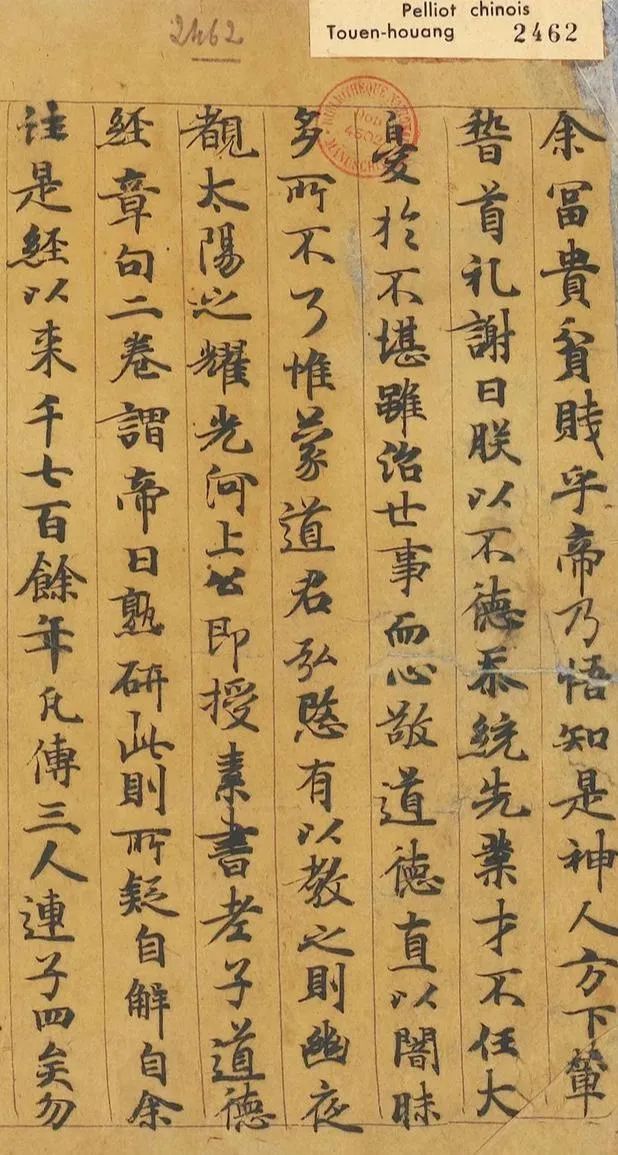 Pelliot chinois
Touen-houang 2462
2462
余冨貴貧賤乎帝乃悟知是神人方下輦
稽首礼謝曰朕以不德忝統先業才不任大
憂於不堪雖治世事而心敬道德直以闇昧
多所不了惟蒙道君弘愍有以教之則幽夜
覩太陽之耀光河上公即授素書老子道德
経章句二卷謂帝曰熟研此則所疑自解自余
註是経以来千七百餘年凡傳三人連子四矣勿